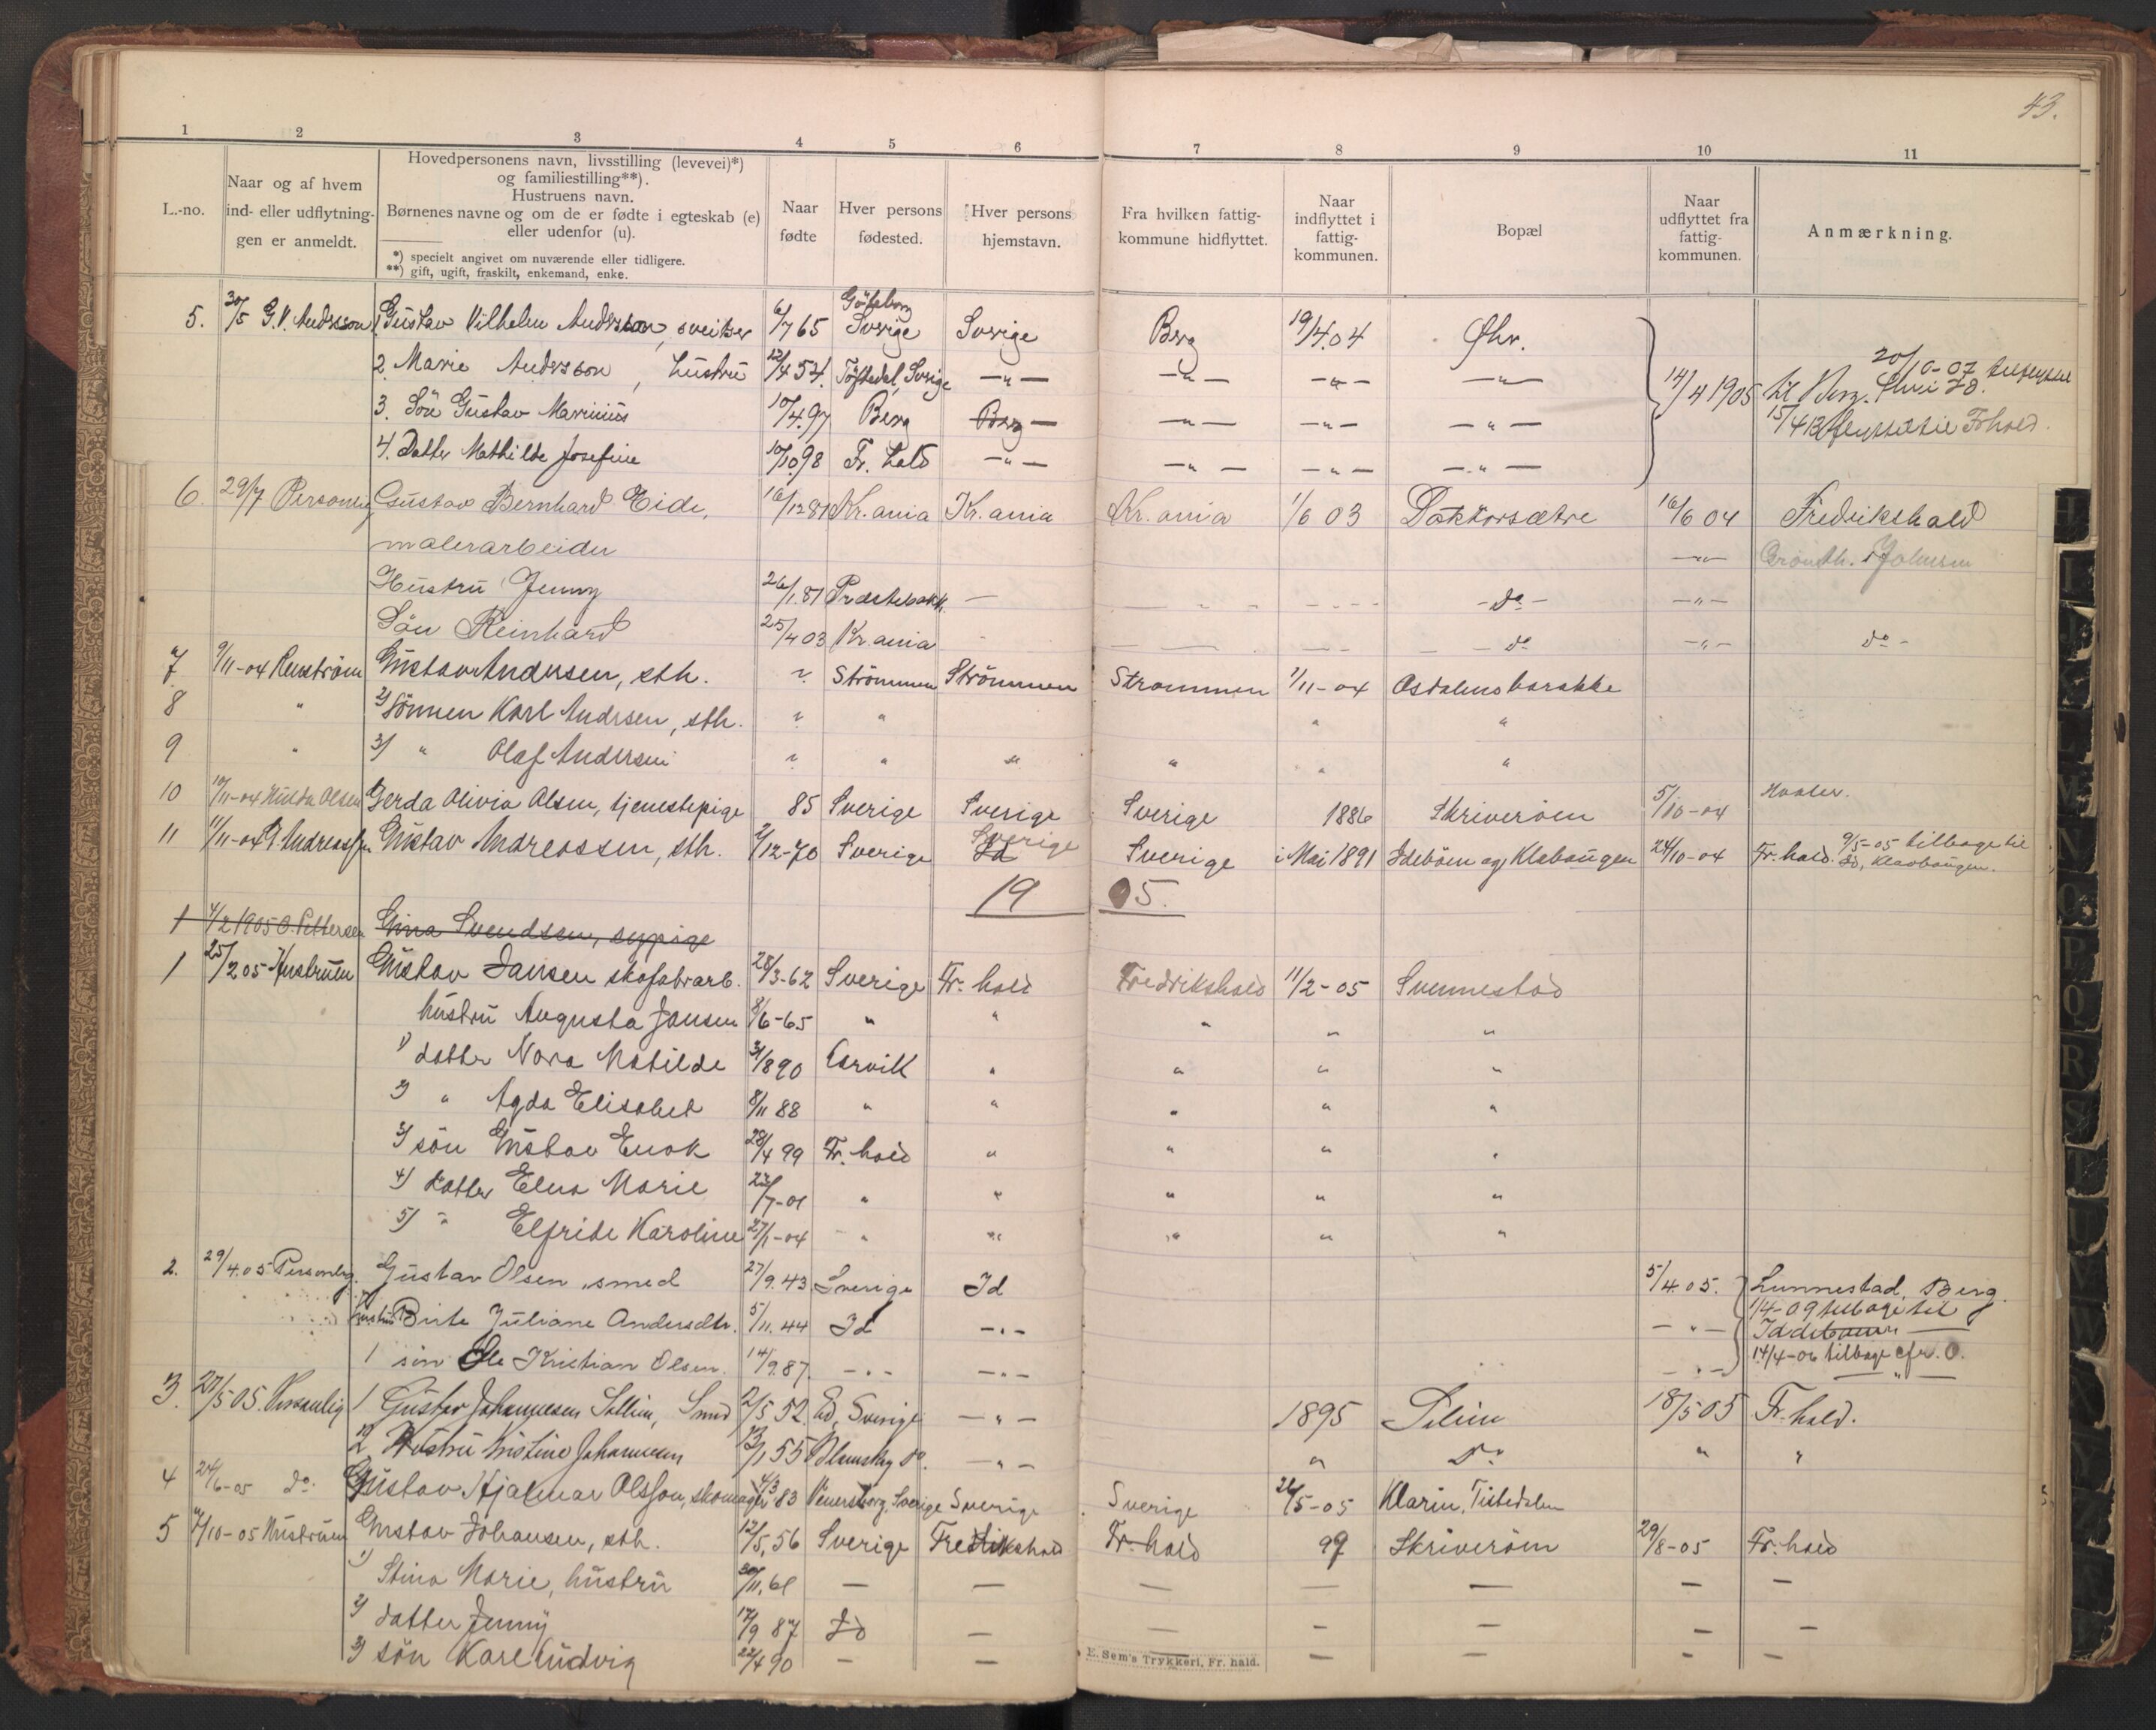 43.
1 2 3 4 5 6 7 8 9 10 11
L.-no.
Naar og af hvem
ind- eller udflytnin-
gen er anmeldt.
Hovedpersonens navn, livsstilling (levevei)*)
og familiestilling**).
Hustruens navn.
Børnenes navne og om de er fødte i egteskab (e)
eller udenfor (u).
*) specielt angivet om nuværende eller tidligere.
**) gift, ugift, fraskilt, enkemand, enke.
Naar
fødte
Hver persons
fødested.
Hver persons
hjemstavn.
Fra hvilken fattig-
kommune hidflyttet.
Naar
indflyttet i
fattig-
kommunen.
Bopæl
Naar
udflyttet fra
fattig-
kommunen.
Anmærkning.
5. 30/5 G.V. Andersson 1 Gustav Vilhelm Andersson, sveitser 6/7 65 Göteborg Sverige Sverige Berg 19/4.04 Øhr.
2. Marie Andersson, hustru 12/4 54. Töftedal, Sverige —"— —"— —"— —"— 14/4 1905 til Berg. 20/10-07
3. Sön Gustav Marinius 10/4.97 Berg Berg — —"— —"— —"— 15/4 12 flyttet til Frhald.
4. Datter Mathilde Josefine 10/10.98 Fr. hald —"— —"— —"— —"—
6. 29/7 Personlig Gustav Bernhard Eide, 16/12 81 Kr.ania Kr.ania Kr.ania 1/6 03 Doktorsætre 16/6 04 Fredrikshald
malerarbeider —"— Johnsen
Hustru Jenny 26/1.81 Prestebakk. — -do- —"—
Sön Reinhard 25/4 03 Kr.ania - do —"— do -
7. 9/11-04 Renström Gustav Andersen, sth. ? Strömmen Strömmen Strømmen 1/11-04 Osdalens barakke
8 " 2) Sönnen Karl Andersen, sth. ? " " "
9 " 3) " Olaf Andersen ? " " " " "
10 10/11-04 Hulda Olsen Gerda Olivia Olsen, tjenestepige 85 Sverige Sverige Sverige 1886 Skriveröen 5/10-04 Hvaler.
11 11/11-04 G. Andreassen Gustav Andreassen, sth. 2/12-70 Sverige Id Sverige Sverige i Mai 1891 Ideböen og Klebaugen 24/10-04 Fr. hald. 9/5-05 tilbage til
Id, Klavbaugen.
19 05.
1 4/2 1905 O. Pettersen Gina Svendsen, sypige
1 25/2 05 Hustruen Gustav Jansen skofabrarb. 28/3-62 Sverige Fr. hald Fredrikshald 11/2-05 Svennestad
hustru Augusta Jansen 8/6-65 " " " " "
1) datter Nora Matilde 31/8 90 Larvik " " " "
2) " Agda Elisabet 8/11 88 " " " " "
3) sön Gustav Enok 28/4 99 Fr. hald " " " "
4) datter Elna Marie 22/7-01 " " " " "
5) " Elfride Karoline 27/1-04 " " " " "
2. 29/4.05 Personlig. Gustav Olsen, smed 27/9.43 Sverige Id 5/4.05. Lunnestad, Berg.
hustru Birte Juliane Andersdtr. 5/11.44 Id —"— —"— 1/4-09 tilbage til
Iddeböen
1 sön Ole Kristian Olsen. 14/9.87. —"— —"— —"— 14/4-06 tilbage cfr. O.
3. 27/5 05. Personlig 1 Gustav Johannesen Sellin, Smed 2/5 52 Ed, Sverige —"— 1895 Selin 18/5 05 Fr. hald.
2 Hustru Kristine Johannesen 13/1 55 do. —"— " Do " "
4 24/6-05 do. Gustav Hjalmar Olsson, skomager 4/3 83 Venersborg, Sverige Sverige Sverige 26/5-05 Klarin, Tistedalen
5 7/10-05 Hustruen Gustav Johansen, sth. 12/5, 56 Sverige Fredrikshald Fr. hald 97 Skriveröen 29/8-05 Fr. hald
1) Stina Marie, hustru 30/11, 61 — — — — — — —
2) datter Jenny 17/9 87 Id — — — — — —
3) sön Karl Ludvig 22/4 90 — — — — — — —
E. Sem's Trykkeri, Fr. hald.